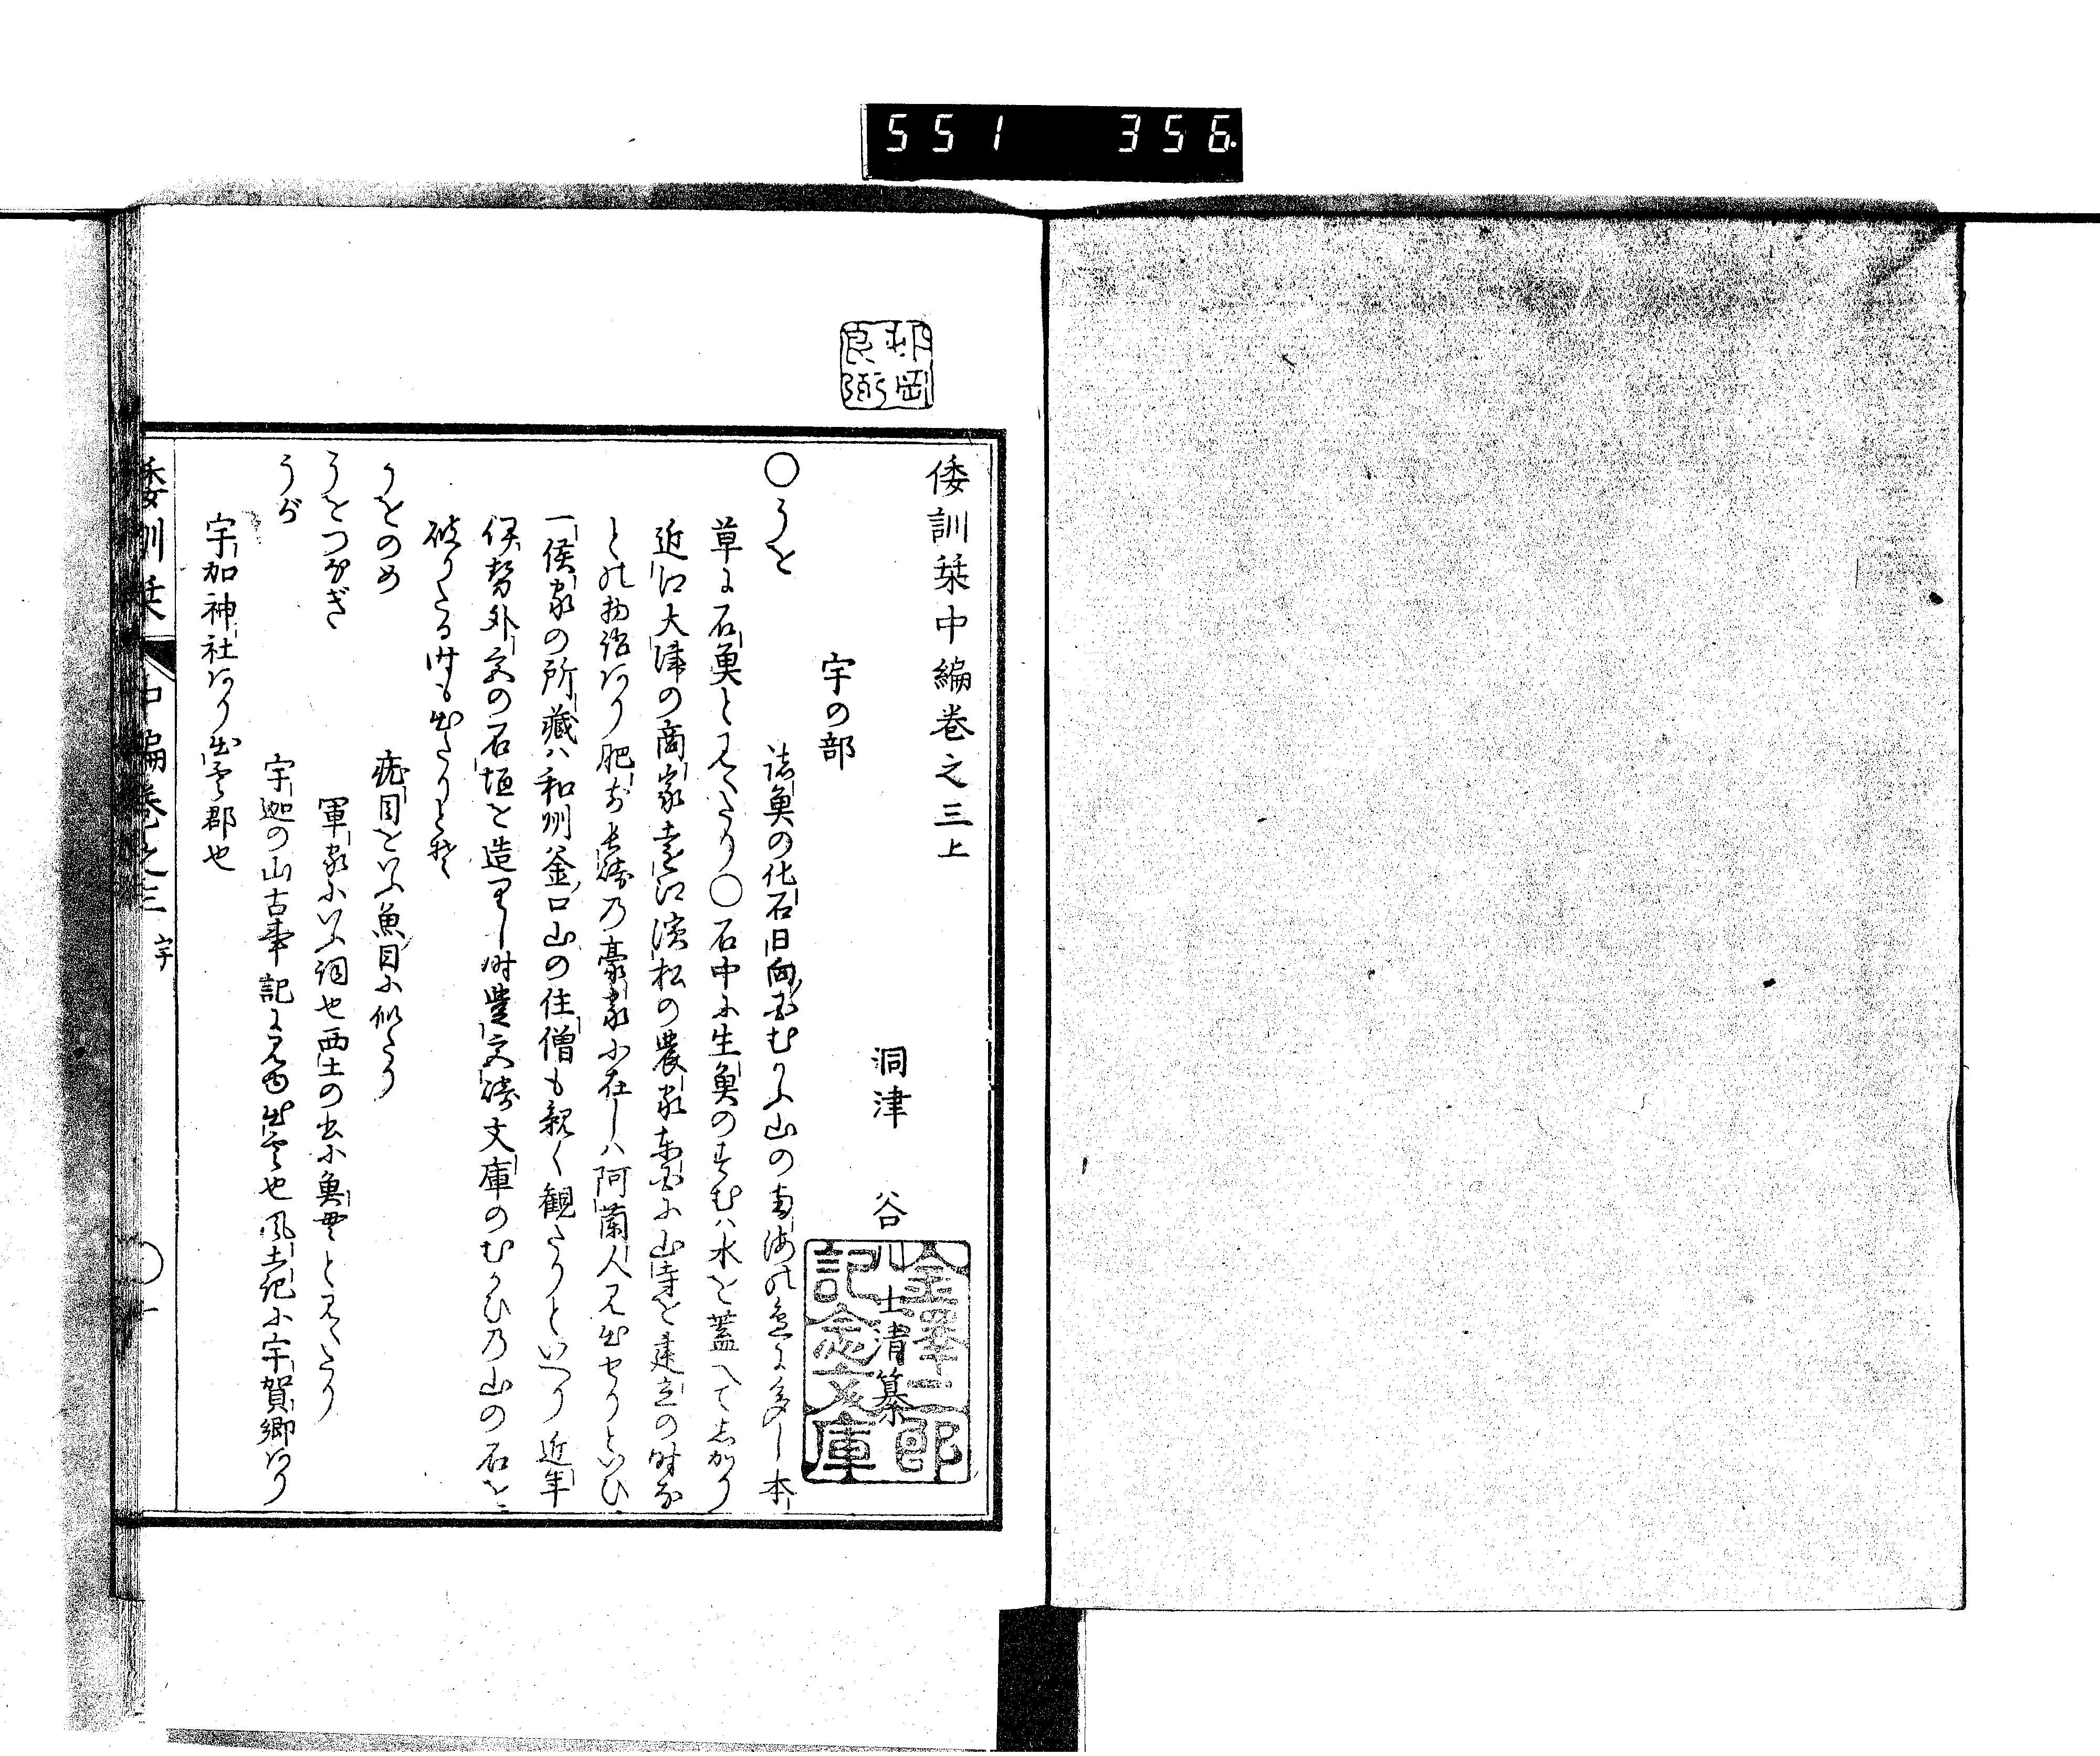 551 356
邨岡良弼
倭訓栞中編巻之三上
洞津 谷川士清纂
金澤二郎記念文庫
宇の部
○うを 諸魚の化石日向国むかふ山の南海の魚に多し本
草に石魚と見えたり○石中に生魚のすむハ水を蓋へてしかり
近江大津の商家遠江濱松の農家東国に山寺を建立の時な
との物語あり肥前長崎乃豪家に在しハ阿蘭人見出せりといひ
一侯家の所藏ハ和州釜口山の住僧も親く観たりといへり近年
伊勢外宮の石垣を造りし時豊宮崎文庫のむかひ乃山の石を
破りたる時も出たりとそ
うをのめ 疣目をいふ魚目に似たり
うをつなぎ 軍家にいふ詞也西土の書に魚貫と見えたり
うが 宇迦の山古事記に見ゆ出雲也風土記に宇賀郷あり
宇加神社あり出雲郡也
倭訓栞 中編巻之三 宇 ○一